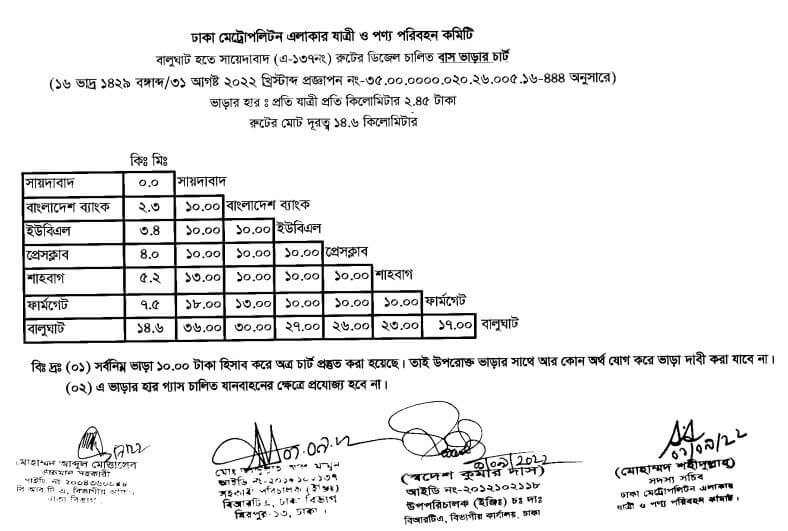 ঢাকা মেট্রোপলিটন এলাকার যাত্রী ও পণ্য পরিবহন কমিটি
বালুঘাট হতে সায়েদাবাদ (এ-১৩৭নং) রুটের ডিজেল চালিত বাস ভাড়ার চার্ট
(১৬ ভাদ্র ১৪২৯ বঙ্গাব্দ/৩১ আগষ্ট ২০২২ খ্রিস্টাব্দ প্রজ্ঞাপন নং-৩৫.০০.০০০০.০২০.২৬.০০৫.১৬-৪৪৪ অনুসারে)
ভাড়ার হার ঃ প্রতি যাত্রী প্রতি কিলোমিটার ২.৪৫ টাকা
রুটের মোট দূরত্ব ১৪.৬ কিলোমিটার
কিঃ মিঃ
সায়দাবাদ ০.০ সায়দাবাদ
বাংলাদেশ ব্যাংক ২.৩ ১০.০০ বাংলাদেশ ব্যাংক
ইউবিএল ৩.৪ ১০.০০ ১০.০০ ইউবিএল
প্রেসক্লাব ৪.০ ১০.০০ ১০.০০ ১০.০০ প্রেসক্লাব
শাহবাগ ৫.২ ১৩.০০ ১০.০০ ১০.০০ ১০.০০ শাহবাগ
ফার্মগেট ৭.৫ ১৮.০০ ১৩.০০ ১০.০০ ১০.০০ ১০.০০ ফার্মগেট
বালুঘাট ১৪.৬ ৩৬.০০ ৩০.০০ ২৭.০০ ২৬.০০ ২৩.০০ ১৭.০০ বালুঘাট
বিঃ দ্রঃ (০১) সর্বনিম্ন ভাড়া ১০.০০ টাকা হিসাব করে অত্র চার্ট প্রস্তুত করা হয়েছে। তাই উপরোক্ত ভাড়ার সাথে আর কোন অর্থ যোগ করে ভাড়া দাবী করা যাবে না।
(০২) এ ভাড়ার হার গ্যাস চালিত যানবাহনের ক্ষেত্রে প্রযোজ্য হবে না।
মোহাম্মদ আব্দুল মোত্তালেব
বি আর টি এ, বিভাগীয় অফিস,
ঢাকা বিভাগ।
সহকারী পরিচালক (ইঞ্জিঃ)
বিআরটিএ, ঢাকা বিভাগ
মিরপুর-১৩, ঢাকা।
(স্বদেশ কুমার দাস)
আইডি নং-২০১২১০২১১৮
উপপরিচালক (ইঞ্জিঃ) চঃ দাঃ
বিআরটিএ, বিভাগীয় কার্যালয়, ঢাকা
(মোহাম্মদ শহীদুল্লাহ)
সদস্য সচিব
ঢাকা মেট্রোপলিটন এলাকার
যাত্রী ও পণ্য পরিবহন কমিটি।